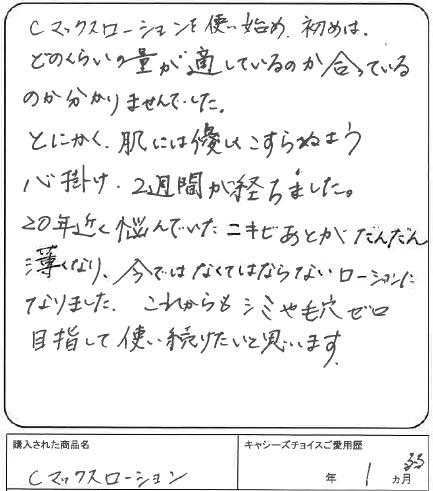 Cマックスローションを使い始め、初めは、
どのくらいの量が適しているのか合っている
のか分かりませんでした。
とにかく、肌には優しくこすらぬよう
心掛け、2週間が経ちました。
20年近く悩んでいたニキビあとがだんだん
薄くなり、今ではなくてはならないローションに
なりました。これからもシミや毛穴ゼロ
目指して使い続けたいと思います。
購入された商品名 キャシーズチョイスご愛用歴
Cマックスローション 年 1 ヵ月